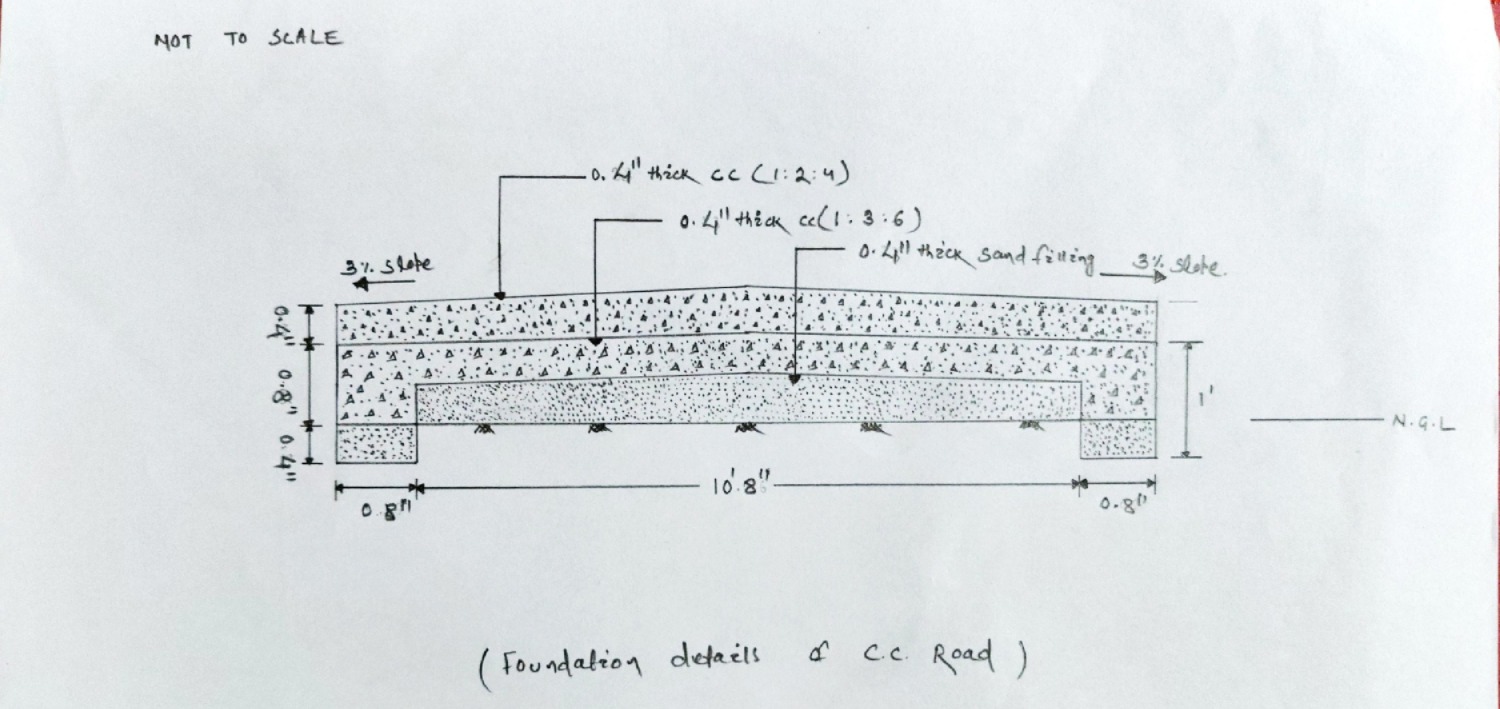 NOT TO SCALE
0.4" thick CC (1:2:4)
0.4" thick cc(1:3:6)
0.4" thick sand filling
3% slope
3% slope.
0.4"
0.8"
0.4"
1'
N.G.L
0.8"
10'.8"
0.8"
(Foundation details of C.C. Road)